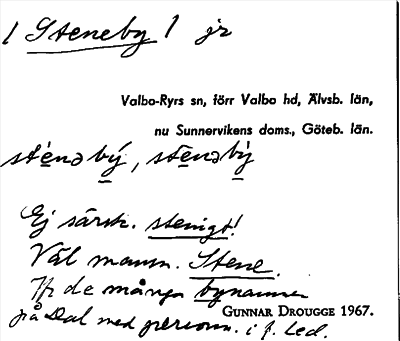 1 Steneby 1 jr
Valbo-Ryrs sn, förr Valbo hd, Älvsb. län,
nu Sunnervikens doms., Göteb. län.
ste̱nəbý̱, ste̱nəbỳ̱
Ej särsk. stenigt!
Väl mansn. Stene.
Jfr de många bynamn
GUNNAR DROUGGE 1967.
på Dal med personn. i f. led.